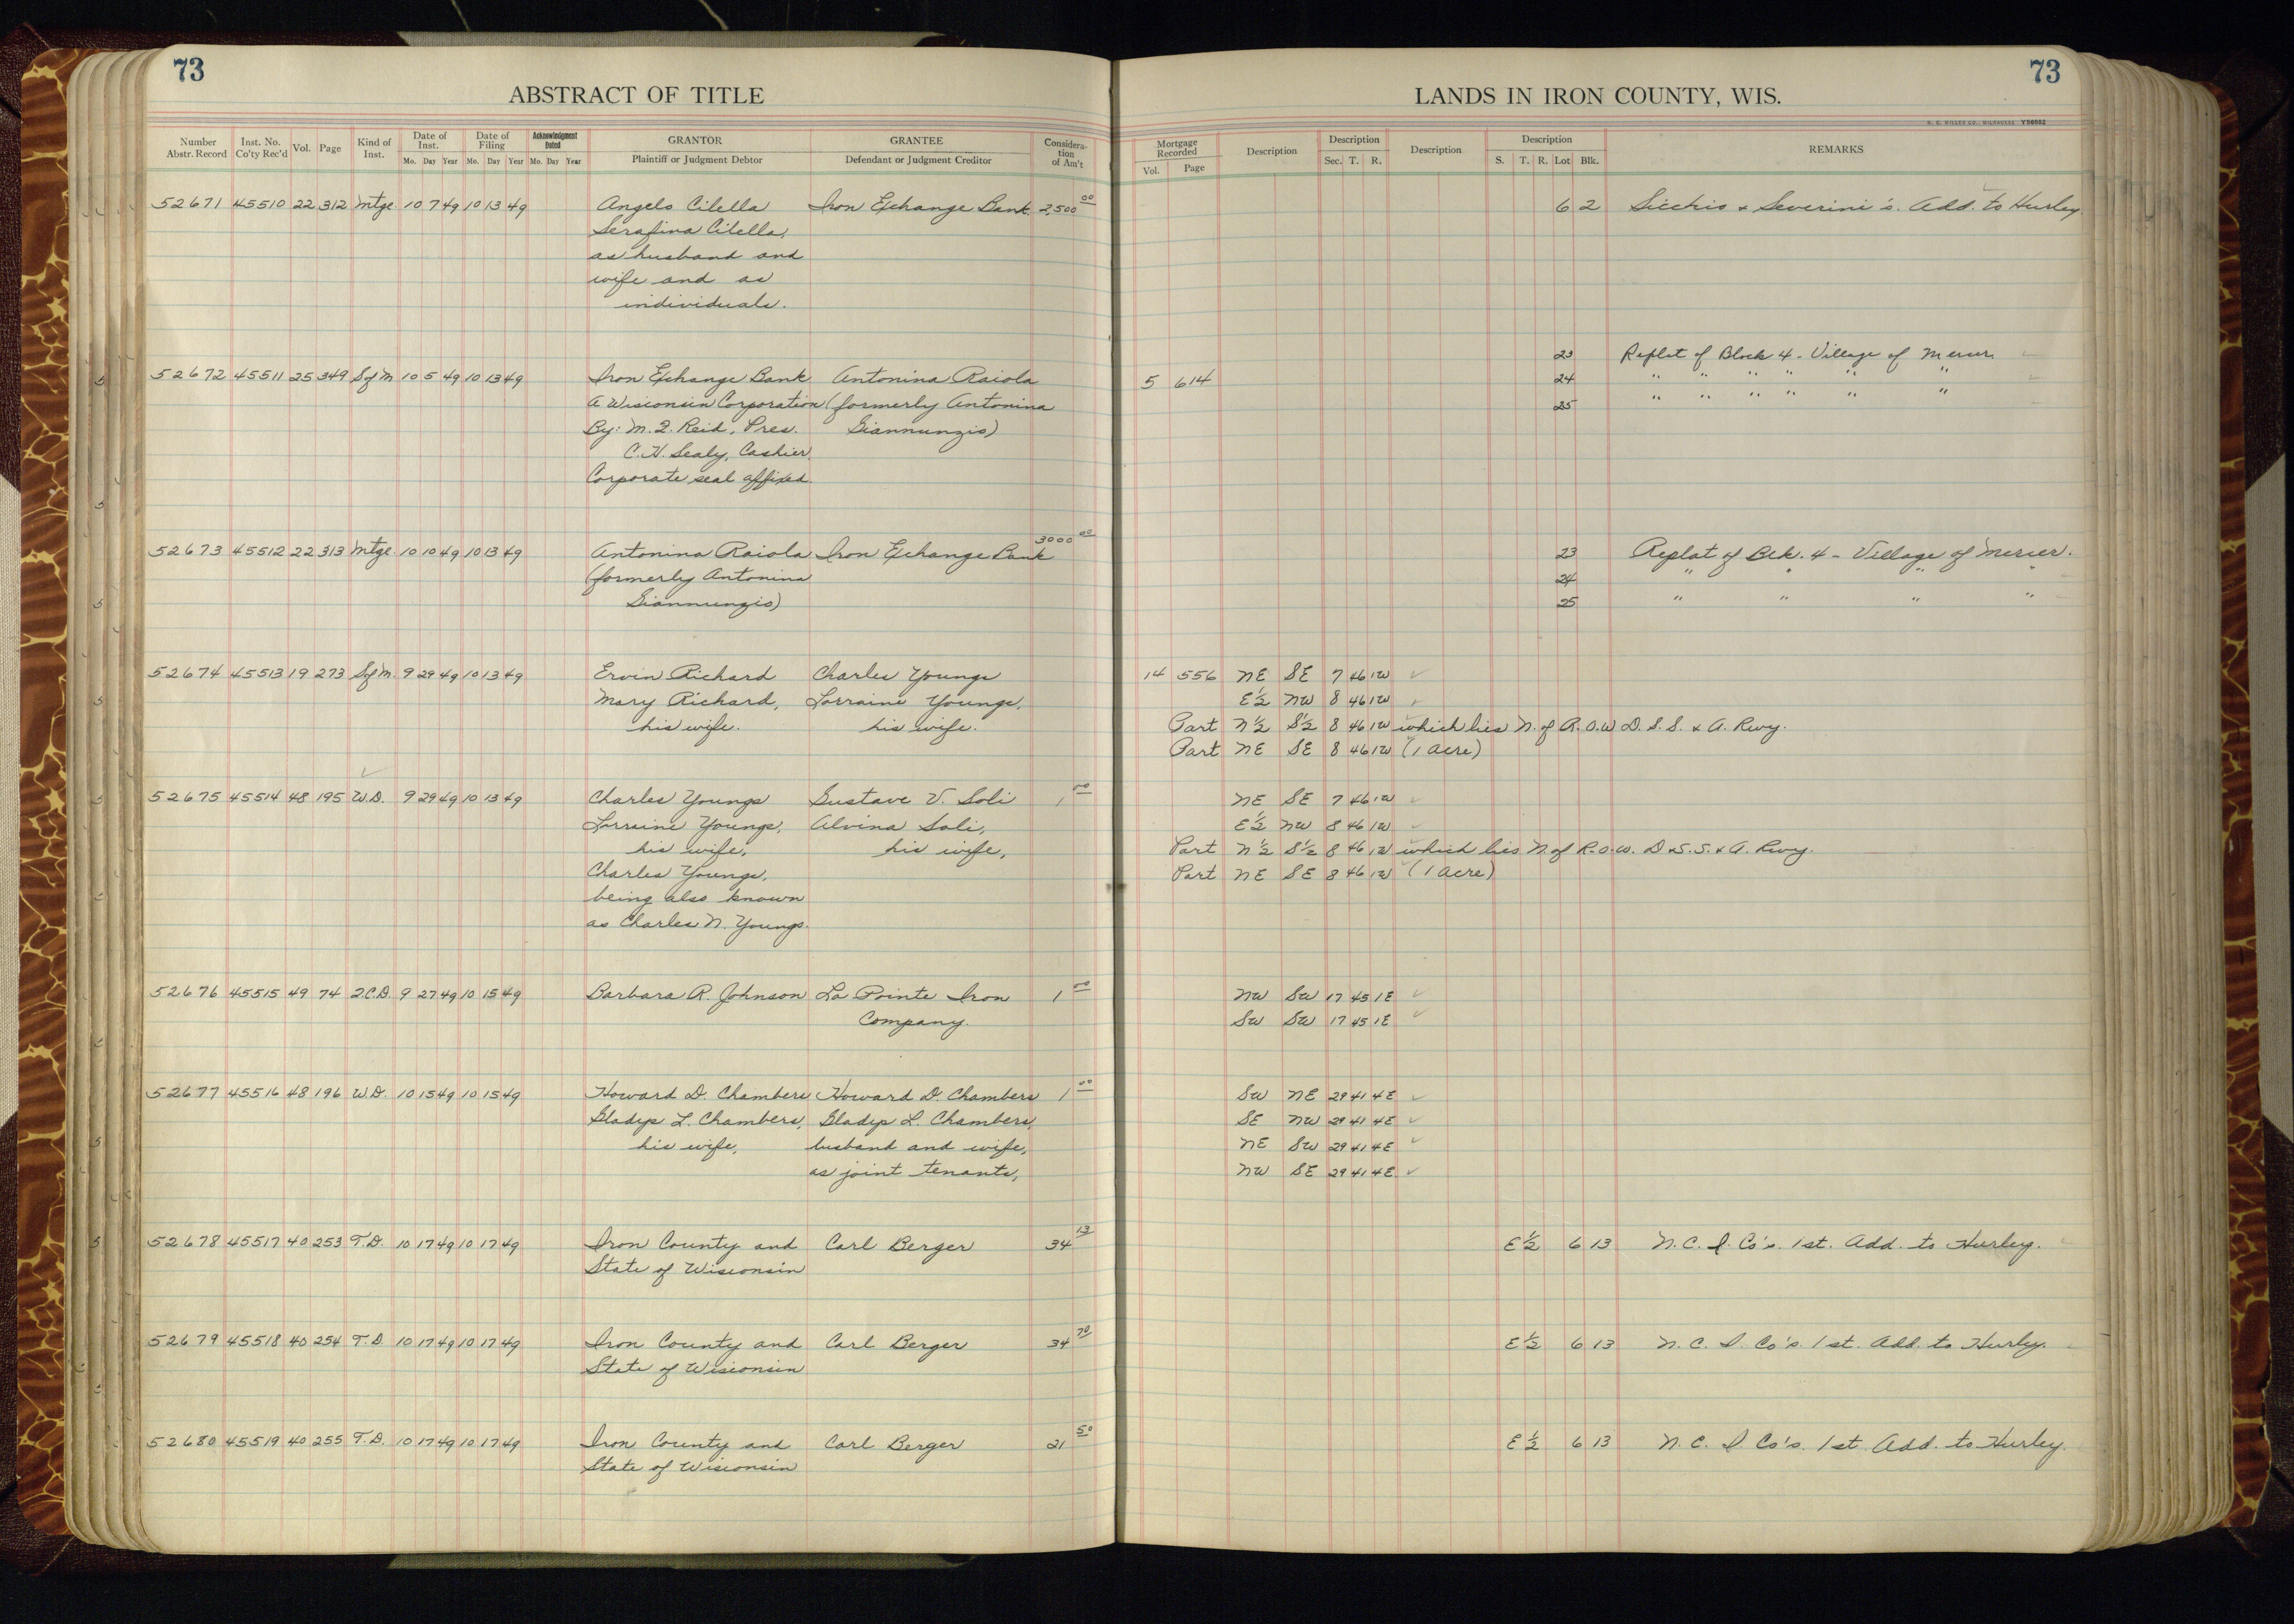 73
ABSTRACT OF TITLE
Number Abstr. Record Inst. No. Co'ty Rec'd Vol. Page Kind of Inst. Date of Inst. Mo. Day Year Date of Filing Mo. Day Year Acknowledgment Dated Mo. Day Year GRANTOR Plaintiff or Judgment Debtor GRANTEE Defendant or Judgment Creditor Consideration of Am't
52671 45510 22 312 Mtge. 10 7 49 10 13 49 Angelo Cilella Iron Exchange Bank. 2,500 00
Serafina Cilella,
as husband and
wife and as
individuals.
52672 45511 25 349 S of M 10 5 49 10 13 49 Iron Exchange Bank Antonina Raiola
A Wisconsin Corporation (formerly Antonina
By: M. J. Reid, Pres. Giannunzio)
C. H. Sealy, Cashier.
Corporate seal affixed.
52673 45512 22 313 Mtge. 10 10 49 10 13 49 Antonina Raiola Iron Exchange Bank 3000 00
(formerly Antonina
Giannunzio)
52674 45513 19 273 S of M. 9 29 49 10 13 49 Ervin Richard Charles Youngs
Mary Richard, Lorraine Youngs,
his wife. his wife.
52675 45514 48 195 W.D. 9 29 49 10 13 49 Charles Youngs Gustave V. Soli 1 00
Lorraine Youngs, Alvina Soli,
his wife, his wife,
Charles Youngs,
being also known
as Charles N. Youngs.
52676 45515 49 74 Q.C.D. 9 27 49 10 15 49 Barbara R. Johnson La Pointe Iron 1 00
Company.
52677 45516 48 196 W.D. 10 15 49 10 15 49 Howard D. Chambers Howard D. Chambers 1 00
Gladys L. Chambers, Gladys L. Chambers,
his wife, husband and wife,
as joint tenants,
52678 45517 40 253 T.D. 10 17 49 10 17 49 Iron County and Carl Berger 34 13
State of Wisconsin
52679 45518 40 254 T.D. 10 17 49 10 17 49 Iron County and Carl Berger 34 70
State of Wisconsin
52680 45519 40 255 T.D. 10 17 49 10 17 49 Iron County and Carl Berger 21 50
State of Wisconsin
73
LANDS IN IRON COUNTY, WIS.
H. C. MILLER CO., MILWAUKEE Y56982
Mortgage Recorded Vol. Page Description Description Sec. T. R. Description Description S. T. R. Lot Blk. REMARKS
6 2 Sicchio & Severini's. Add. to Hurley.
23 Replat of Block 4 - Village of Mercer.
5 614 24 " " " " " "
25 " " " " " "
23 Replat of Blk. 4 - Village of Mercer.
24 " " " "
25 " " " "
14 556 NE SE 7 46 1W
E½ NW 8 46 1W
Part N½ S½ 8 46 1W which lies N. of R.O.W D.S.S. & A. Rwy.
Part NE SE 8 46 1W (1 acre)
NE SE 7 46 1W
E½ NW 8 46 1W
Part N½ S½ 8 46 1W which lies N. of R.O.W. D.S.S. & A. Rwy.
Part NE SE 8 46 1W (1 acre)
NW SW 17 45 1E
SW SW 17 45 1E
SW NE 29 41 4E
SE NW 29 41 4E
NE SW 29 41 4E
NW SE 29 41 4E
E½ 6 13 N. C. I. Co's. 1st. Add. to Hurley.
E½ 6 13 N. C. I. Co's. 1st. Add. to Hurley.
E½ 6 13 N. C. I. Co's. 1st. Add. to Hurley.